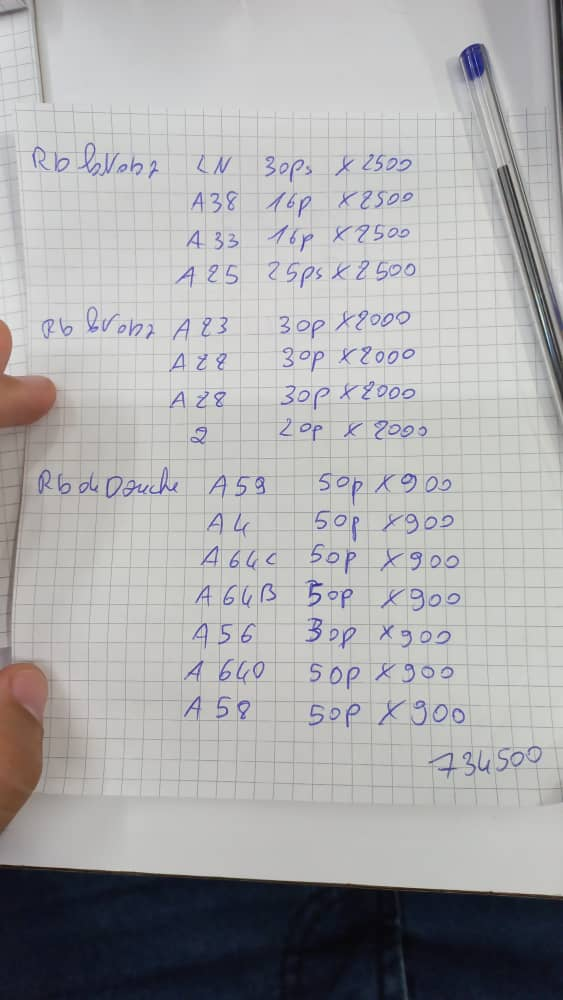 Rb lavabo LN 30ps x 2500
A38 16p x2500
A33 16p x2500
A25 25ps x2500
Rb lavabo A23 30p x2000
A22 30p x2000
A28 30p x2000
2 20p x 2000
Rb de Douche A59 50p x900
A4 50p x900
A64C 50p x900
A64B 50p x900
A56 30p x900
A640 50p x900
A58 50p x900
734500